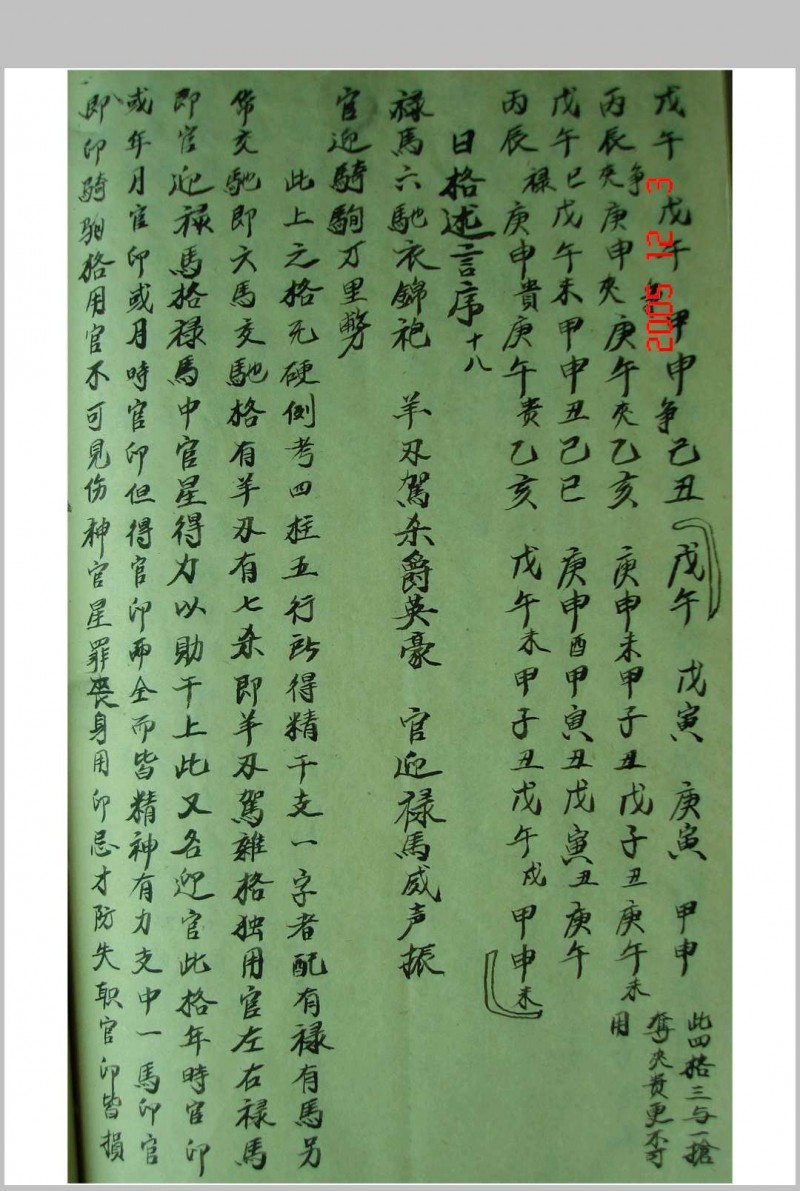 戊午 戊午 争 甲申 争 己丑 戊午 戊寅 庚寅 甲申
此四格三与一搶
奪夾贵更不可
用
丙辰 夾 庚申 夾 庚午 夾 乙亥 庚申 未 甲子 丑 戊子 丑 庚午 未
戊午 巳 戊午 未 甲申 丑 己巳 庚申 酉 甲寅 丑 戊寅 丑 庚午
丙辰 禄 庚申 貴 庚午 贵 乙亥 戊午 未 甲子 丑 戊午 戌 甲申 未
日格述言序 十八
禄馬六馳衣錦袍 羊刃駕杀爵英豪 官迎禄馬威声振
官迎騎駒万里勞
此上之格无硬側考四柱五行所得精干支一字者配有禄有馬另
作交馳即六馬交馳格有羊刃有七杀即羊刃駕雜格独用官左右禄馬
即官迎禄馬格禄馬中官星得力以助干上此又名迎官此格年時官印
或年月官印或月時官印但得官印兩全而皆精神有力支中一馬印官
即印騎駒格用官不可見伤神官星罪喪身用印忌才防失职官印皆損
2005 12 3